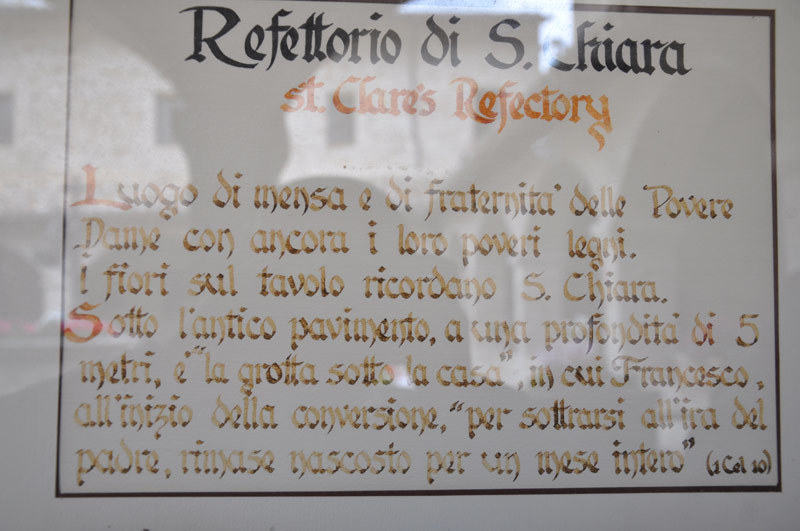 Refettorio di S. Chiara
st. Clare's Refectory
Luogo di mensa e di fraternita' delle Povere
Dame con ancora i loro poveri legni.
I fiori sul tavolo ricordano S. Chiara.
Sotto l'antico pavimento, a una profondita' di 5
metri, e' "la grotta sotto la casa", in cui Francesco,
all'inizio della conversione, "per sottrarsi all'ira del
padre, rimase nascosto per un mese intero" (1 Cel 10)